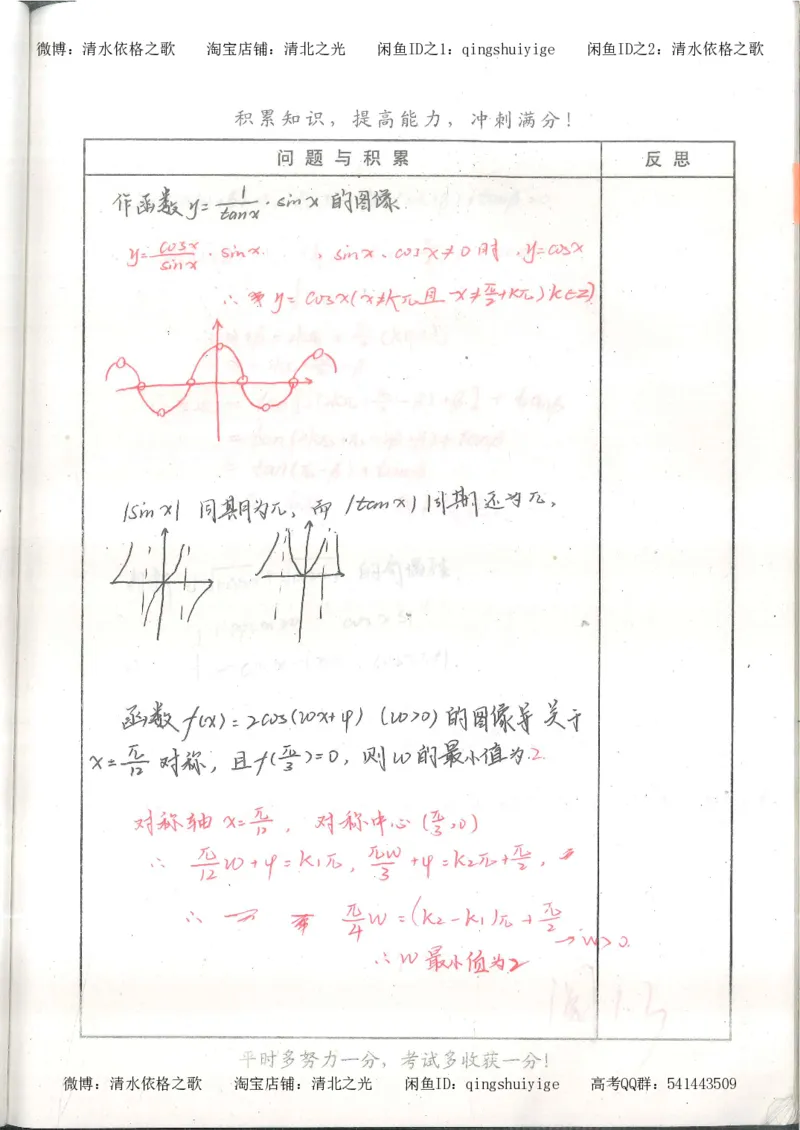 微博：清水依格之歌 淘宝店铺：清北之光 闲鱼ID之1：qingshuiyige 闲鱼ID之2：清水依格之歌
积累知识，提高能力，冲刺满分！
问题与积累 反思
作函数y=1/tanx·sinx的图像
y=cosx/sinx·sinx. ，sinx、cosx≠0时，y=cosx
∴ y=cosx(x≠kπ且x≠π/2+kπ)k∈Z)
|sinx|周期为π，而|tanx|周期还为π，
函数f(x)=2cos(wx+φ)(w>0)的图像关于
x=π/12对称，且f(π/3)=0，则w的最小值为2
对称轴x=π/12，对称中心(π/3,0)
∴ π/12w+φ=k₁π，πw/3+φ=k₂π+π/2，
∴ π/4w=(k₂-k₁)π+π/2
→w>0.
∴w最小值为2
平时多努力一分，考试多收获一分！
微博：清水依格之歌 淘宝店铺：清北之光 闲鱼ID：qingshuiyige 高考QQ群：541443509